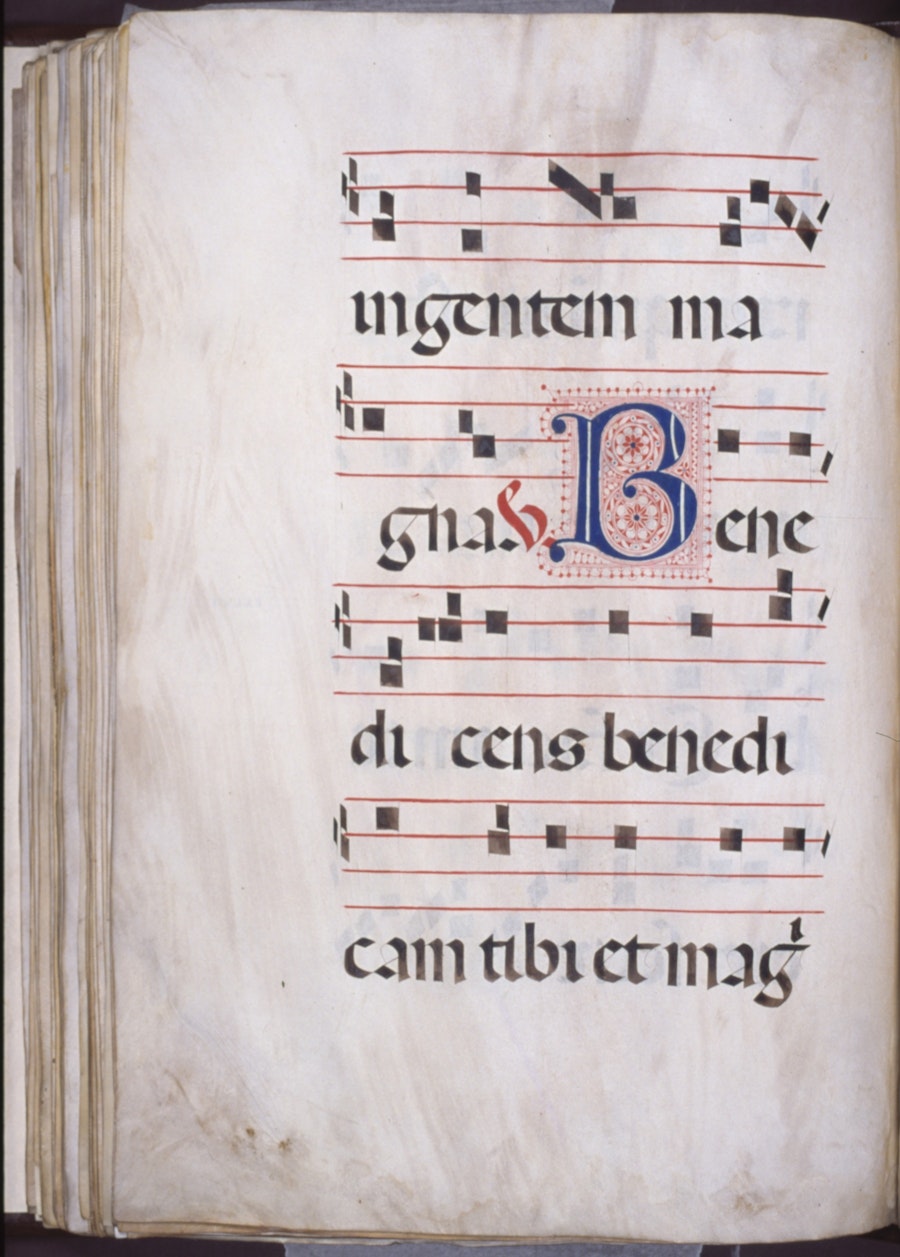 ingentem ma
gna V. Bene
di cens benedi
cam tibi et magⁱ